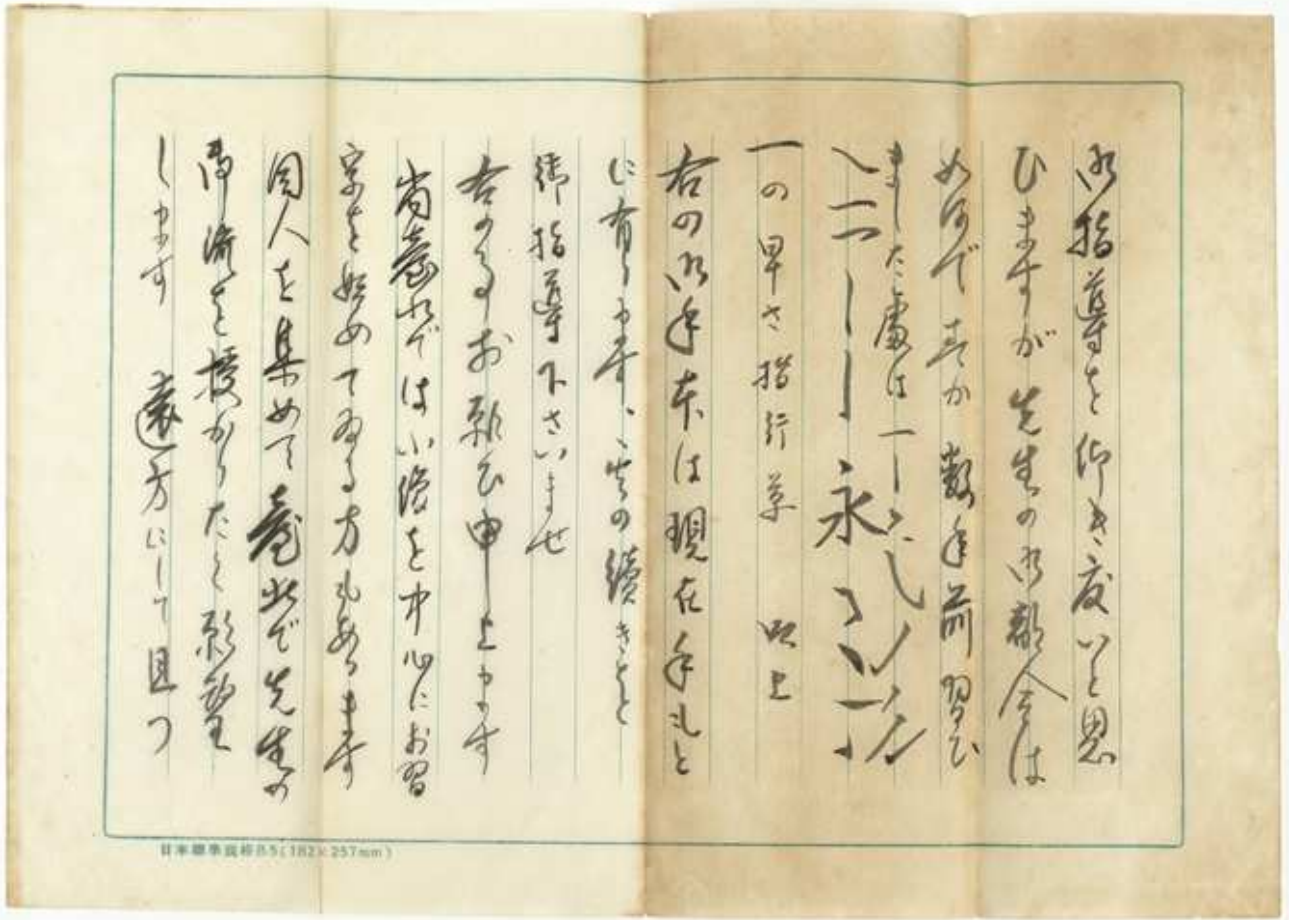 御指導を仰ぎ度いと思
ひますが先生の御都合は
如何ですか 数年前習ひ
ました處は一
永
一の早さ 楷行草 以上
右の御手本は現在手もと
に有ります、其の續きを
御指導下さいませ
右の事お願ひ申し上ます
尚臺北では小浚を中心にお習
字を始めてゐる方もあります
同人を集めて臺北で先生の
御流を授かりたと願望
します 遠方にして且つ
日本標準規格B5(182×257mm)